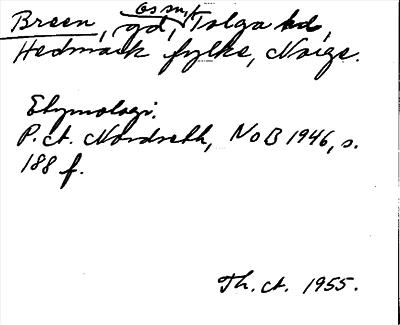 Breen, gd, Tolga hd,
Hedmark fylke, Norge.
Etymologi.
P. A. Nordseth, NoB 1946, s.
188 f.
Th. A. 1955.